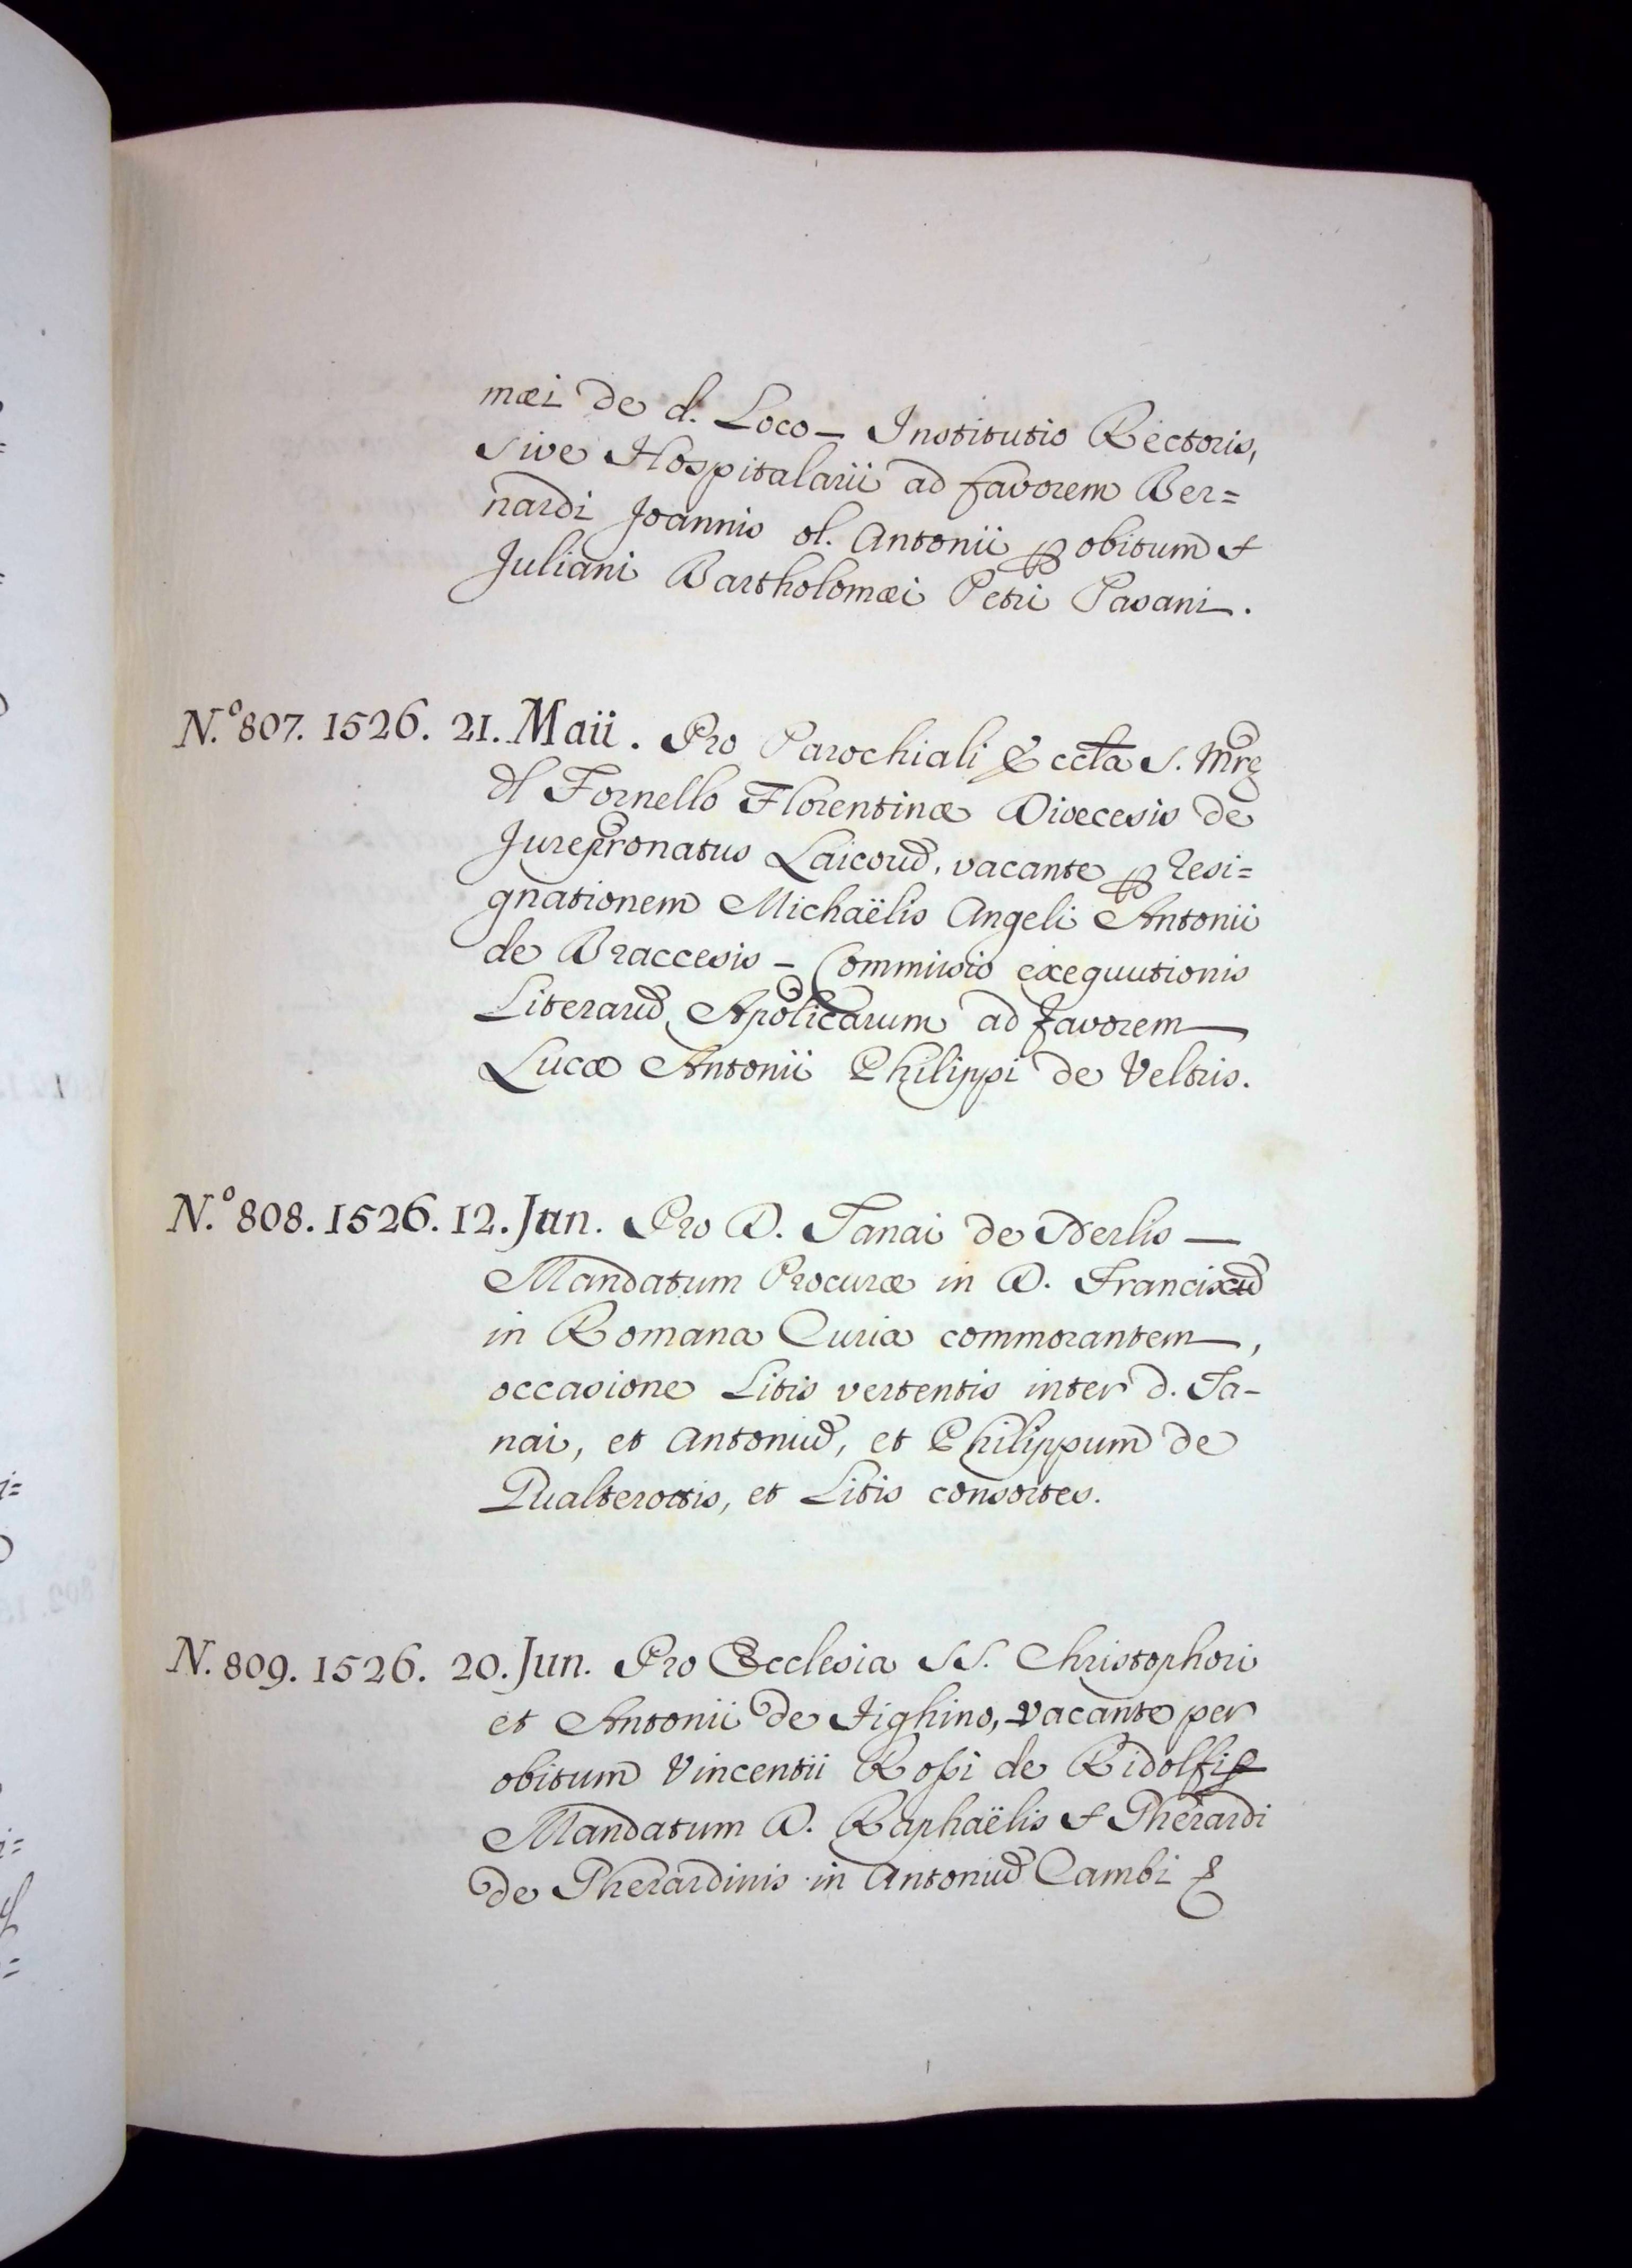 mæi de d. Loco – Institutio Rectoris,
sive Hospitalarii ad favorem Ber=
nardi Joannis ol. Antonii ꝑ obitum
Juliani Bartholomæi Petri Pasani.
N.º 807. 1526. 21. Maii. Pro Parochiali Eccla S. Mrę
dl Fornello Florentinæ Diœcesis de
Jurepronatus Laicoru̅, vacante ꝑ resi=
gnationem Michaëlis Angeli Antonii
de Braccesis – Commissio exequutionis
Literaru̅ Aplicarum ad favorem
Lucæ Antonii Philippi de Veltris.
N.º 808. 1526. 12. Jun. Pro D. Tanai de Nerlis –
Mandatum Procuræ in D. Franciscu̅
in Romana Curia commorantem,
occasione Litis vertentis inter d. Ta-
nai, et Antoniu̅, et Philippum de
Gualterottis, et Litis consortes.
N. 809. 1526. 20. Jun. Pro Ecclesia SS. Christophori
et Antonii de Tighino, vacante per
obitum Vincentii Rossi de Ridolfis
Mandatum D. Raphaëlis Gherardi
de Gherardinis in Antoniu̅ Cambi